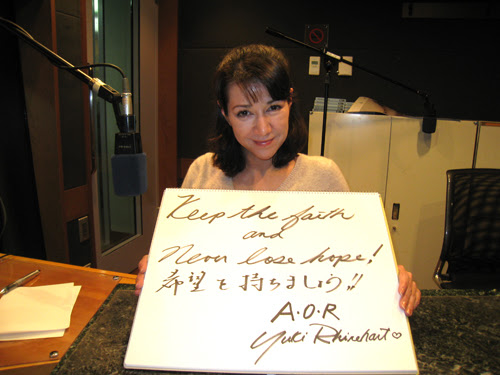 Keep the faith
and
Never lose hope!
希望を持ちましょう!!
A.O.R
Yuki Rhinehart ♡